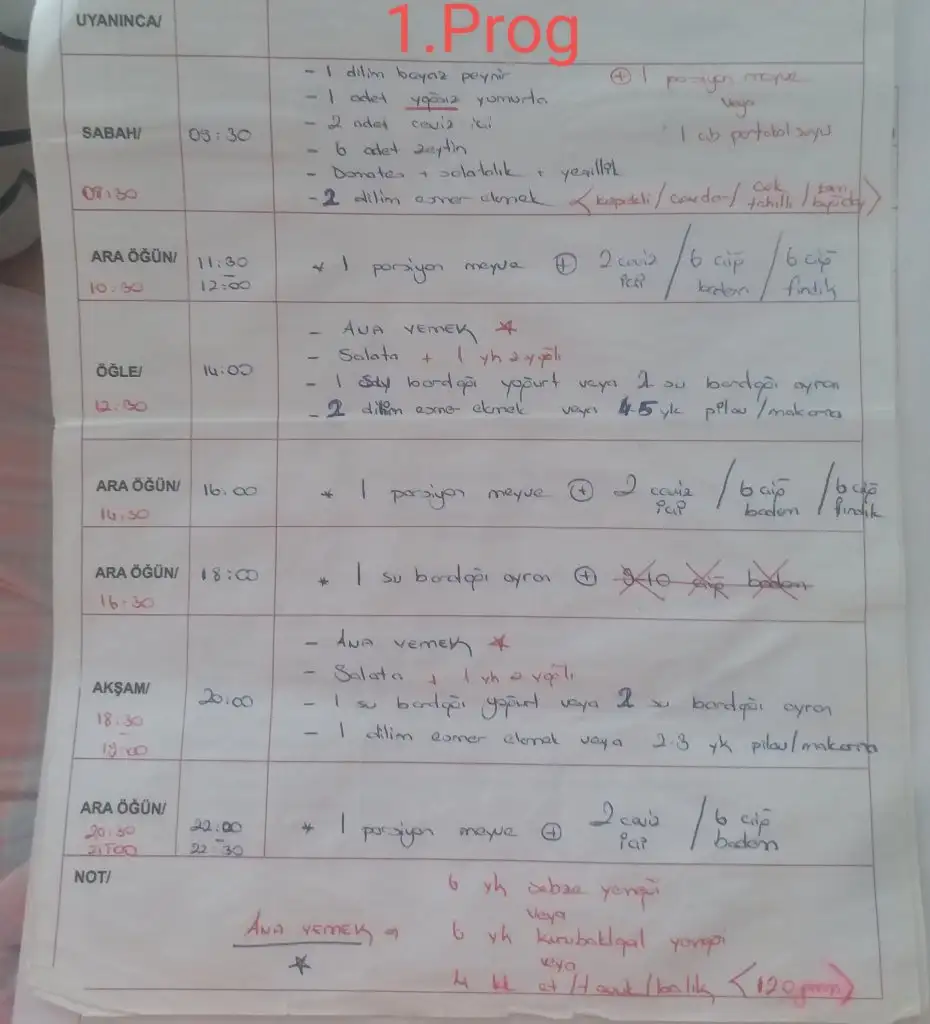 1.Prog
UYANINCA/
SABAH/ 09:30
08:30
- 1 dilim beyaz peynir
- 1 adet yağsız yumurta
- 2 adet ceviz içi
- 6 adet zeytin
- Domates + salatalık + yeşillik
- 2 dilim esmer ekmek < kepekli / çavdar / çok tahıllı / tam buğday >
⊕ 1 porsiyon meyve
veya
1 çb portakal suyu
ARA ÖĞÜN/ 11:30 - 12:00
10:30
* 1 porsiyon meyve ⊕ 2 ceviz içi / 6 çiğ badem / 6 çiğ fındık
ÖĞLE/ 14:00
12:30
- ANA YEMEK *
- Salata + 1 yk z.yağlı
- 1 su bardağı yoğurt veya 2 su bardağı ayran
- 2 dilim esmer ekmek veya 4-5 yk pilav/makarna
ARA ÖĞÜN/ 16:00
14:30
* 1 porsiyon meyve ⊕ 2 ceviz içi / 6 çiğ badem / 6 çiğ fındık
ARA ÖĞÜN/ 18:00
16:30
* 1 su bardağı ayran ⊕ 9-10 çiğ badem
AKŞAM/ 20:00
18:30 - 19:00
- ANA YEMEK *
- Salata + 1 yk z.yağlı
- 1 su bardağı yoğurt veya 2 su bardağı ayran
- 1 dilim esmer ekmek veya 2-3 yk pilav/makarna
ARA ÖĞÜN/ 22:00 - 22:30
20:30 21:00
* 1 porsiyon meyve ⊕ 2 ceviz içi / 6 çiğ badem
NOT/
ANA YEMEK →
*
6 yk sebze yemeği
veya
6 yk kurubaklagil yemeği
veya
4 kk et/tavuk/balık <120 gram>